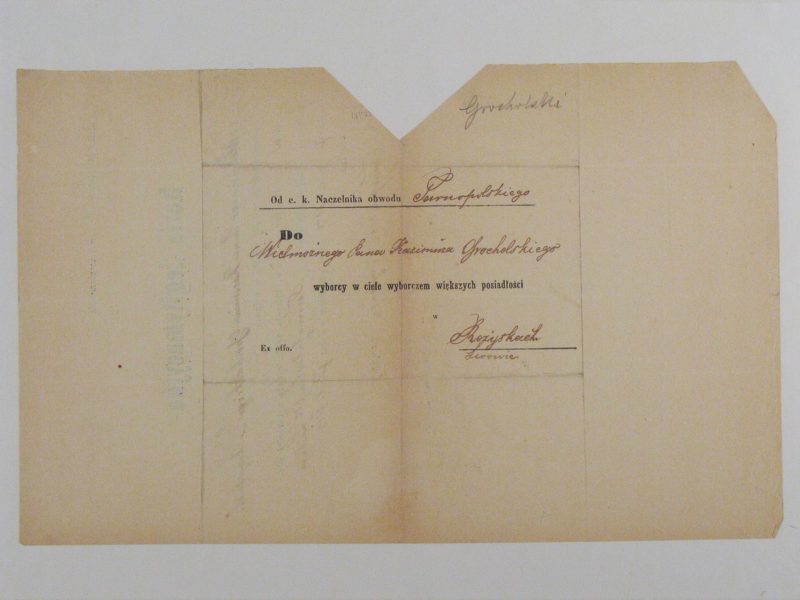 Grocholski
Od c. k. Naczelnika obwodu Tarnopolskiego
Do
Wielmożnego Pana Kazimirza Grocholskiego
wyborcy w ciele wyborczem większych posiadłości
w
Rożyskach
Ex offo.
Lwowie